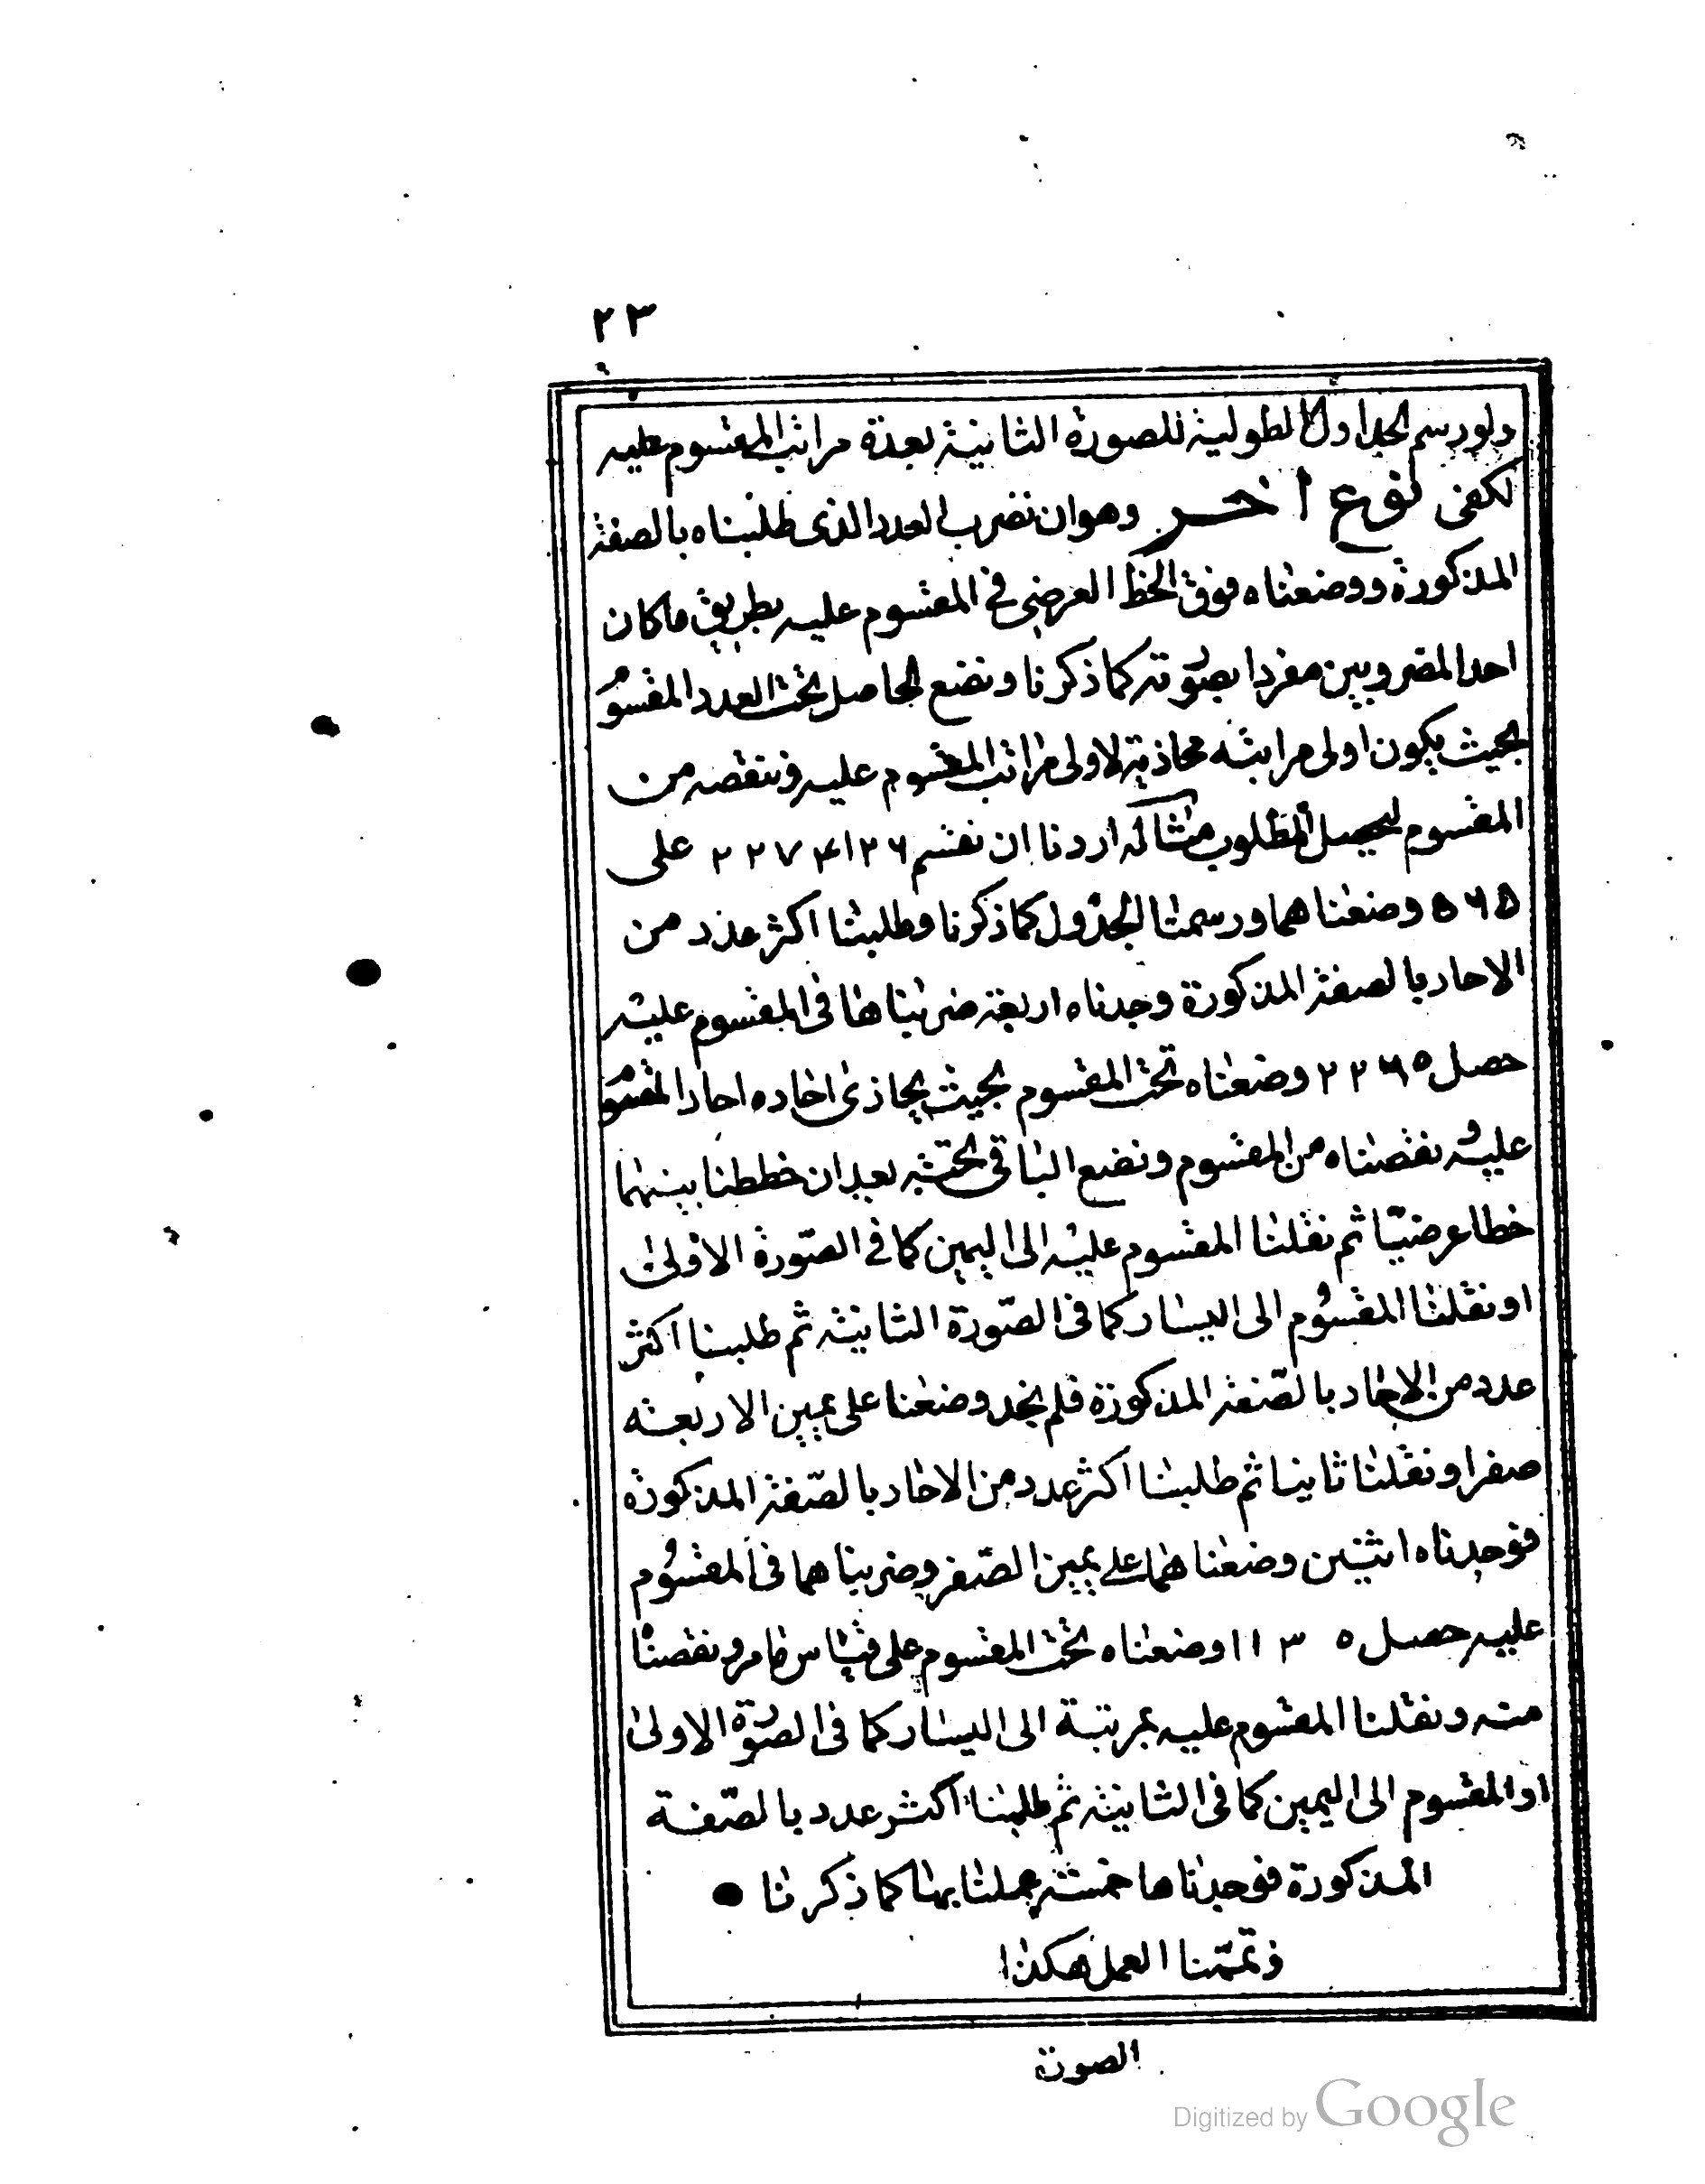 ٢٣
ولو رسم الجداول الطولية للصورة الثانية بعدة مراتب المقسوم عليه
لكفى نوع اخر وهو ان نضرب العدد الذى طلبناه بالصفة
المذكورة ووضعناه فوق الخط العرضى فى المقسوم عليه بطريق ما كان
احد المضروبين مفردا بصورته كما ذكرنا ونضع الحاصل تحت العدد المقسوم
بحيث يكون اولى مراتبه محاذية لاولى مراتب المقسوم عليه وننقصه من
المقسوم ليحصل المطلوب مثاله اردنا ان نقسم ٢٢٧٤١٢٦ على
٥٦٥ وضعناهما ورسمنا الجدول كما ذكرنا وطلبنا اكثر عدد من
الاحاد بالصفة المذكورة وجدناه اربعة ضربناها فى المقسوم عليه
حصل ٢٢٦٥ وضعناه تحت المقسوم بحيث يحاذى احاده احاد المقسوم
عليه ونقصناه من المقسوم ونضع الباقى تحته بعد ان خططنا بينهما
خطا عرضيا ثم نقلنا المقسوم عليه الى اليمين كما فى الصورة الاولى
او نقلنا المقسوم الى اليسار كما فى الصورة الثانية ثم طلبنا اكثر
عدد من الاحاد بالصفة المذكورة فلم نجد وضعنا على يمين الاربعة
صفرا ونقلنا ثانيا ثم طلبنا اكثر عدد من الاحاد بالصفة المذكورة
فوجدناه اثنين وضعناهما على يمين الصفر وضربناهما فى المقسوم
عليه حصل ١١٣٥ وضعناه تحت المقسوم على قياس ما مر ونقصنا
منه ونقلنا المقسوم عليه بمرتبة الى اليسار كما فى الصورة الاولى
او المقسوم الى اليمين كما فى الثانية ثم طلبنا اكثر عدد بالصفة
المذكورة فوجدناها خمسة عملنا بها كما ذكرنا
وتممنا العمل هكذا
الصورة
Digitized by Google